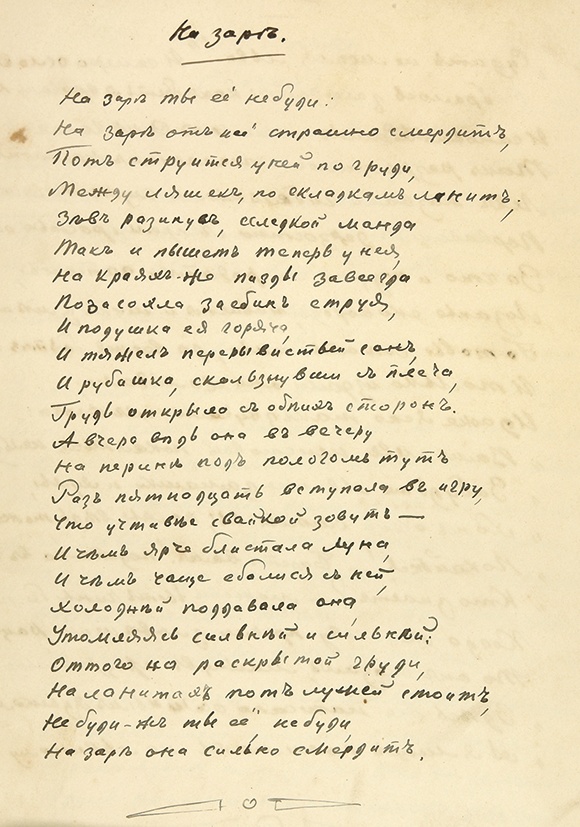 На зарѣ.
На зарѣ ты её не буди:
На зарѣ отъ ней страшно смердитъ,
Потъ струится у ней по груди,
Между ляшекъ, по складкамъ ланитъ;
Зѣвъ разинувъ, селедкой манда
Такъ и пышетъ теперь у нея,
На краяхъ-же пизды завсегда
Позасохла заебинъ струя,
И подушка ея горяча,
И тяжелъ перерывистый сонъ,
И рубашка, скользнувши съ плеча,
Грудь открыла съ обѣихъ сторонъ.
А вчера вѣдь она въ вечеру
На перинѣ подъ пологомъ тутъ
Разъ пятнадцать вступала въ игру,
Что учтивѣе свайкой зовутъ —
И чѣмъ ярче блистала луна,
И чѣмъ чаще еблися съ ней,
Холоднѣй поддавала она,
Утомляясь сильнѣй и сильнѣй:
Оттого на раскрытой груди,
На ланитахъ потъ лужей стоитъ,
Не буди-жъ ты её не буди
На зарѣ она сильно смердитъ.